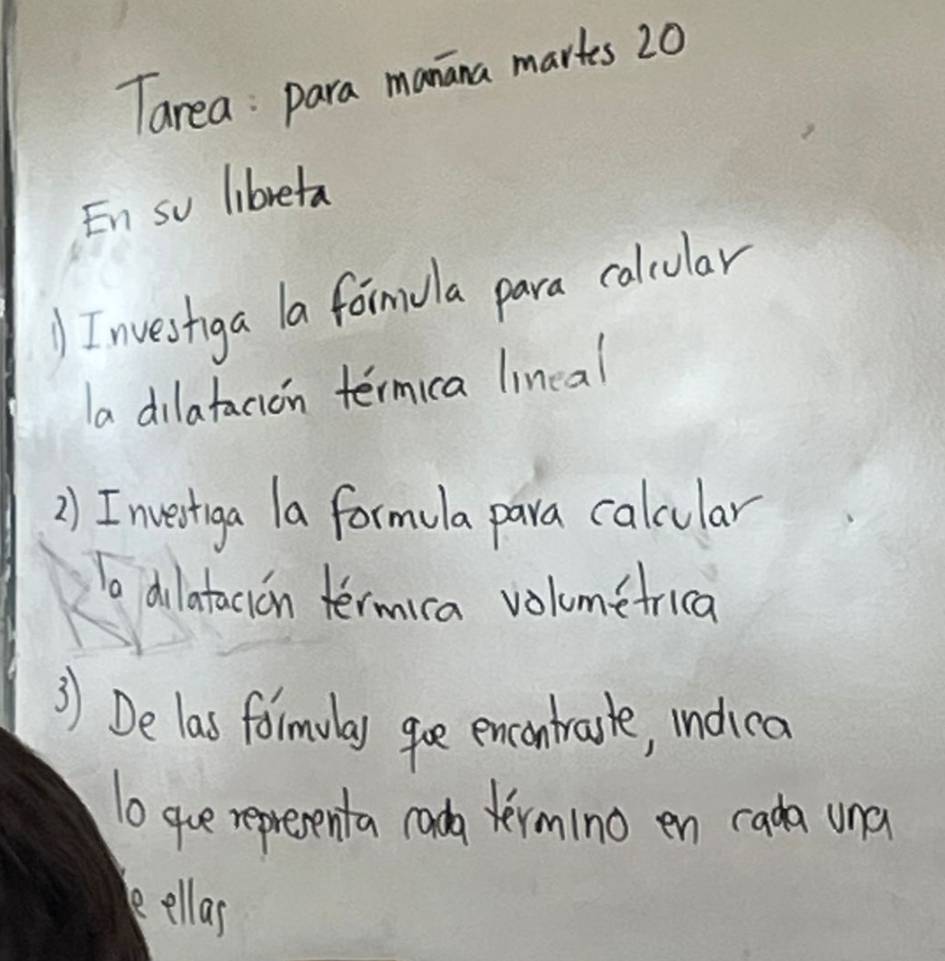 Tarea: para mañana martes 20
En su libreta
1) Investiga la fórmula para calcular
la dilatación térmica lineal
2) Investiga la formula para calcular
la dilatación térmica volumétrica
3) De las fórmulas que encontraste, indica
lo que representa cada término en cada una
de ellas